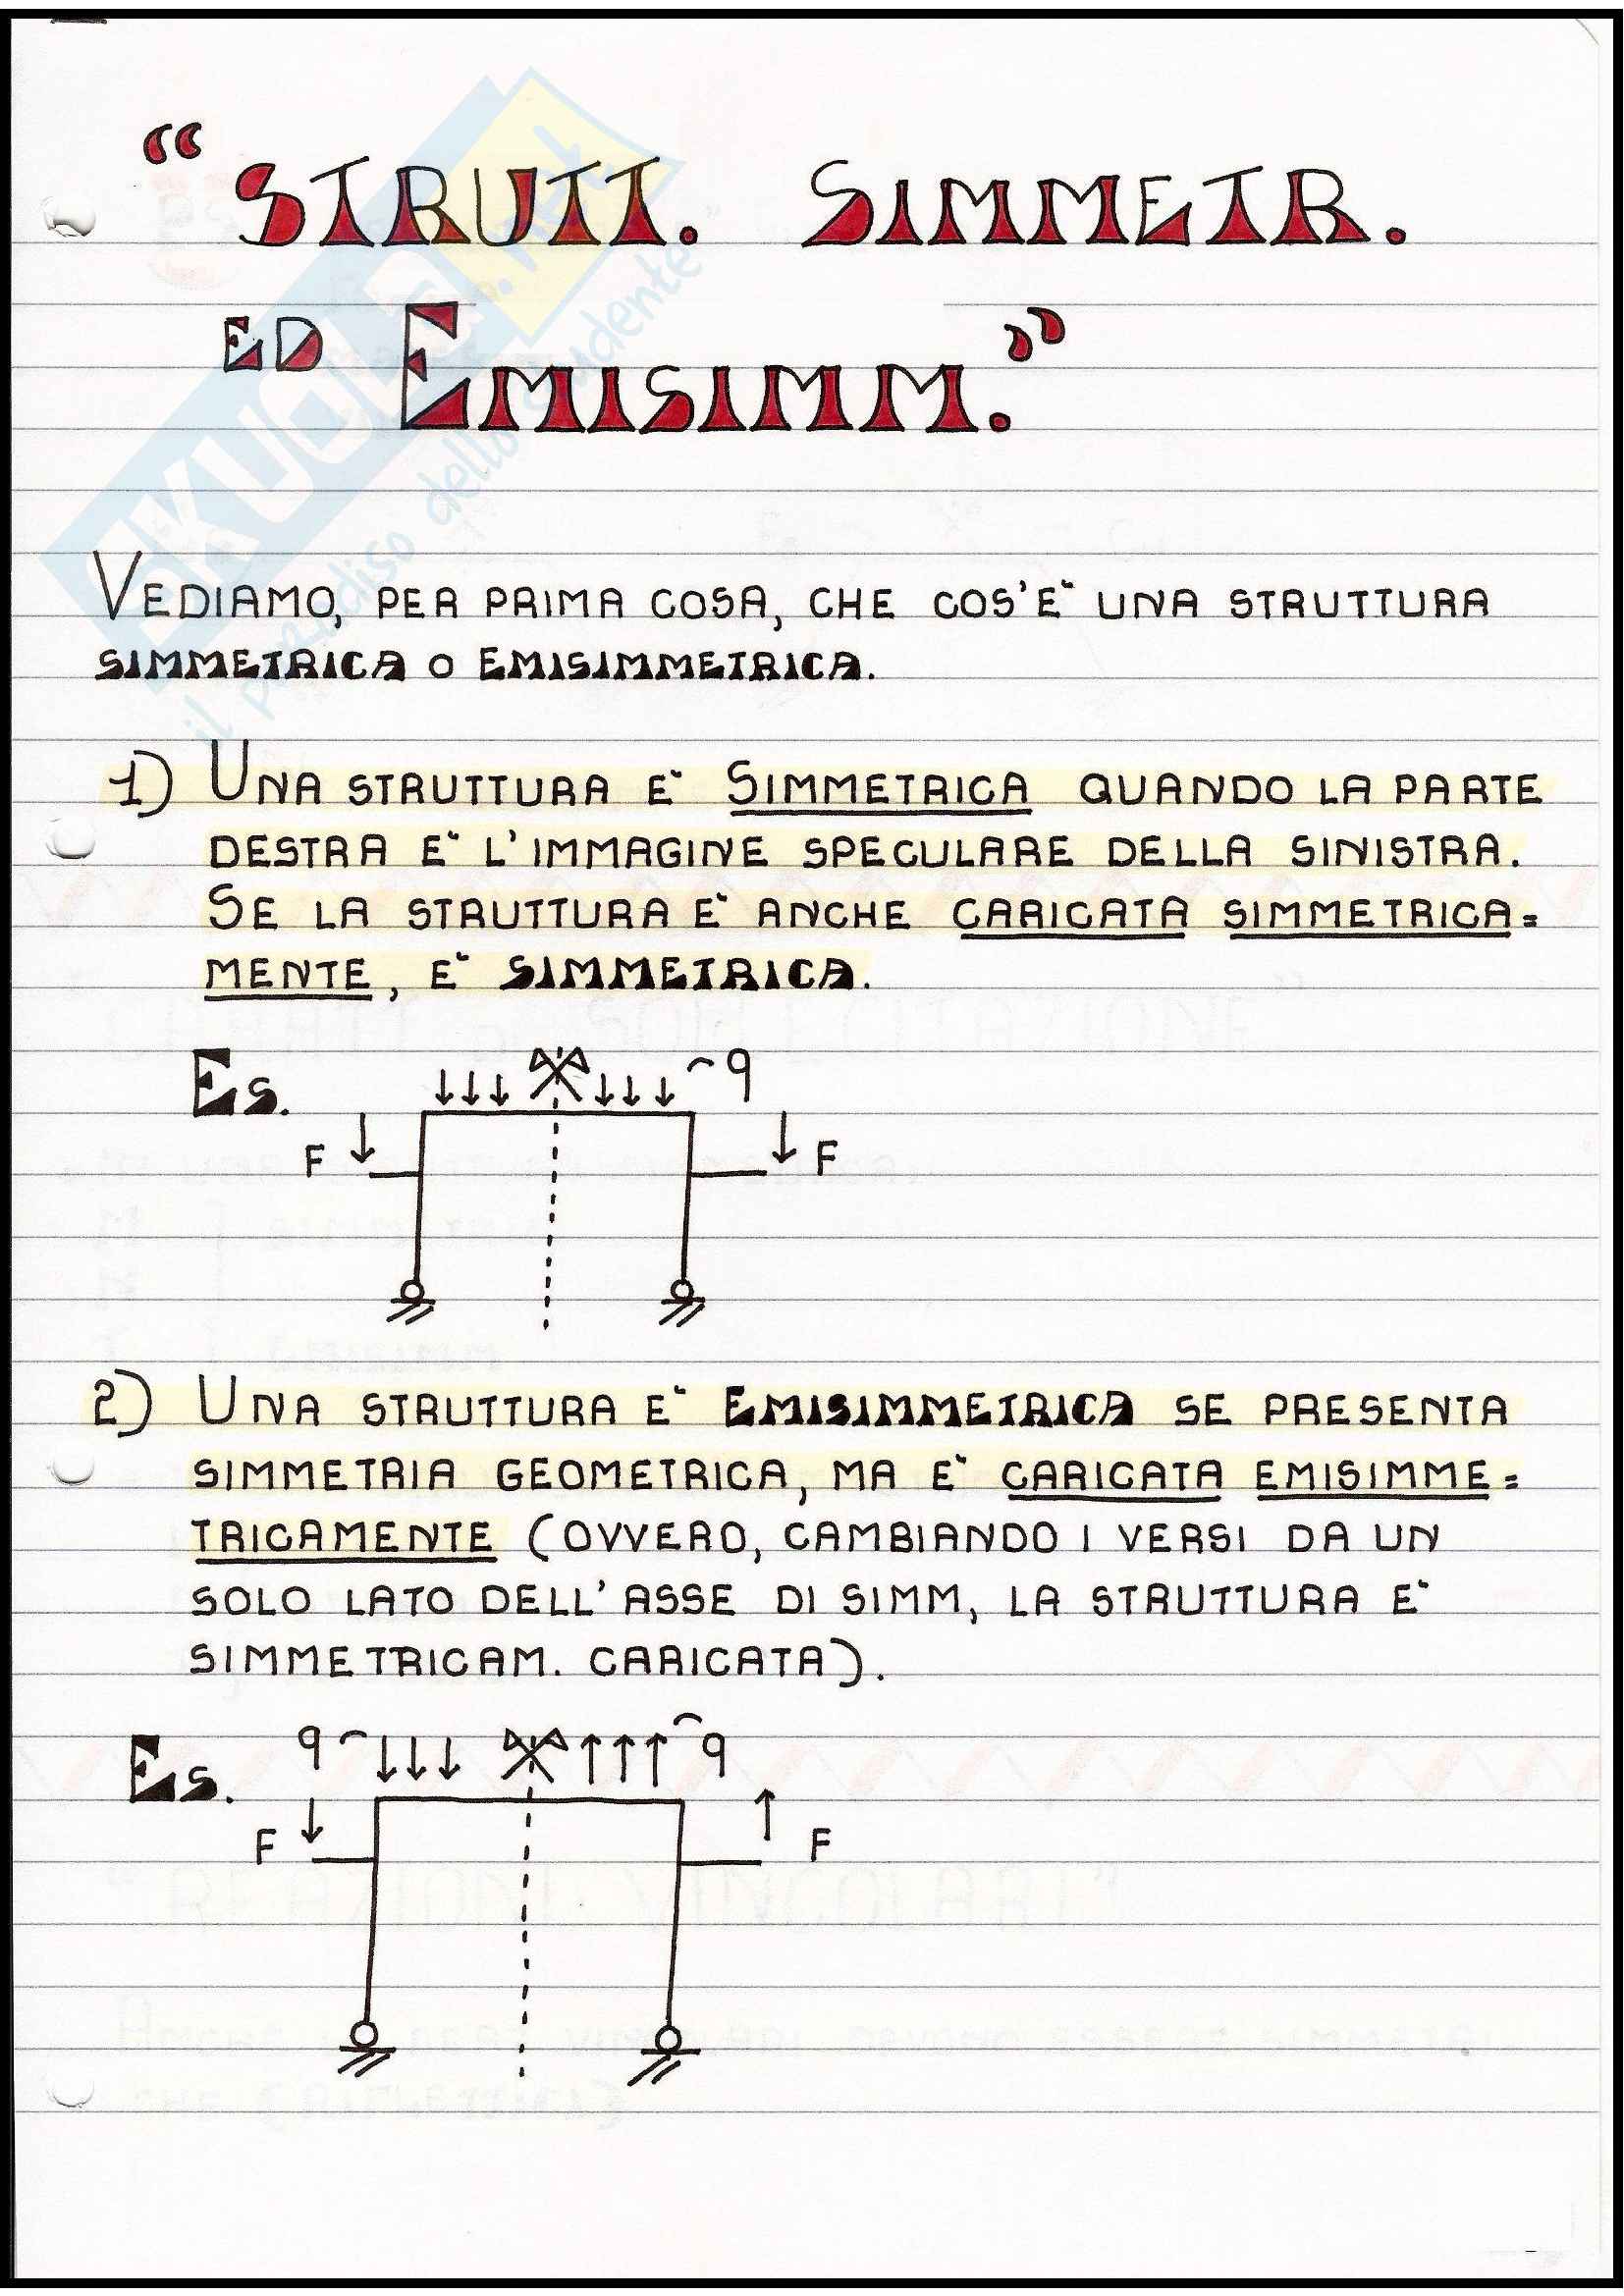 “STRUTT. SIMMETR.
ED EMISIMM.”
SKUOLA.net
il paradiso dello studente
VEDIAMO, PER PRIMA COSA, CHE COS'E` UNA STRUTTURA
SIMMETRICA O EMISIMMETRICA.
1) UNA STRUTTURA E` SIMMETRICA QUANDO LA PARTE
DESTRA E` L'IMMAGINE SPECULARE DELLA SINISTRA.
SE LA STRUTTURA E` ANCHE CARICATA SIMMETRICA=
MENTE, E` SIMMETRICA.
ES. q
F F
2) UNA STRUTTURA E` EMISIMMETRICA SE PRESENTA
SIMMETRIA GEOMETRICA, MA E` CARICATA EMISIMME=
TRICAMENTE (OVVERO, CAMBIANDO I VERSI DA UN
SOLO LATO DELL'ASSE DI SIMM, LA STRUTTURA E`
SIMMETRICAM. CARICATA).
ES. q q
F F